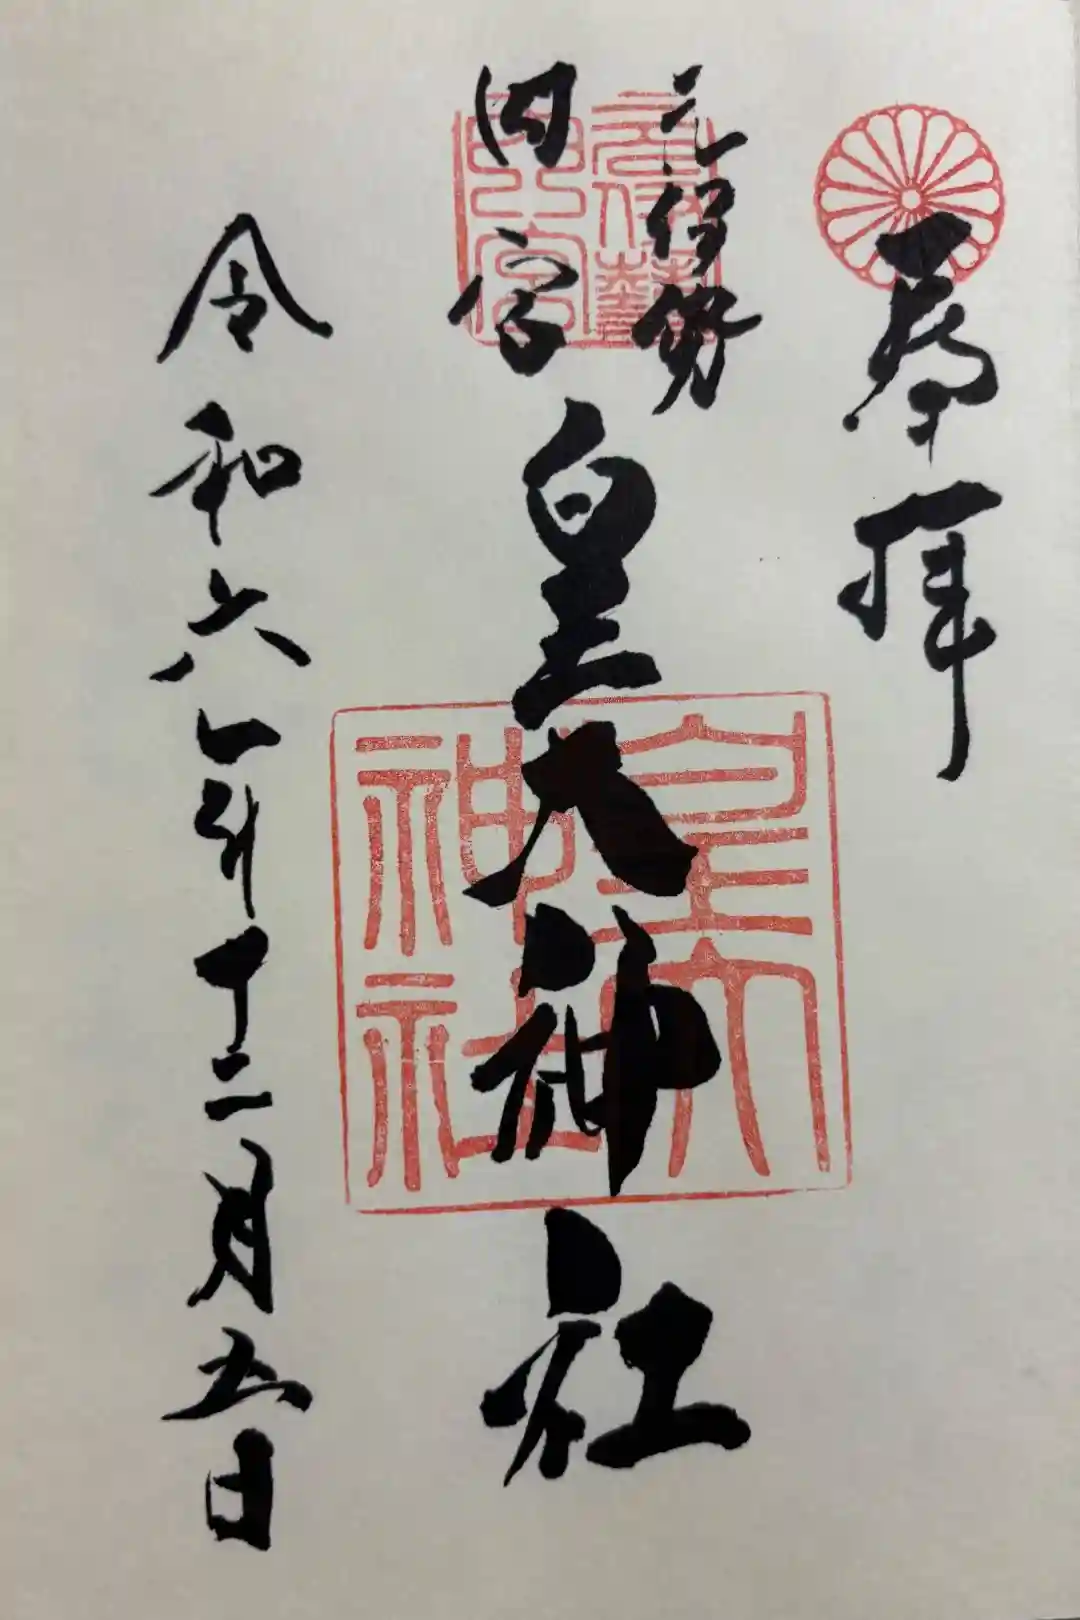 拝
元伊勢
内宮
皇大神社
令和六年十二月五日
元伊勢
内宮
皇大
神社